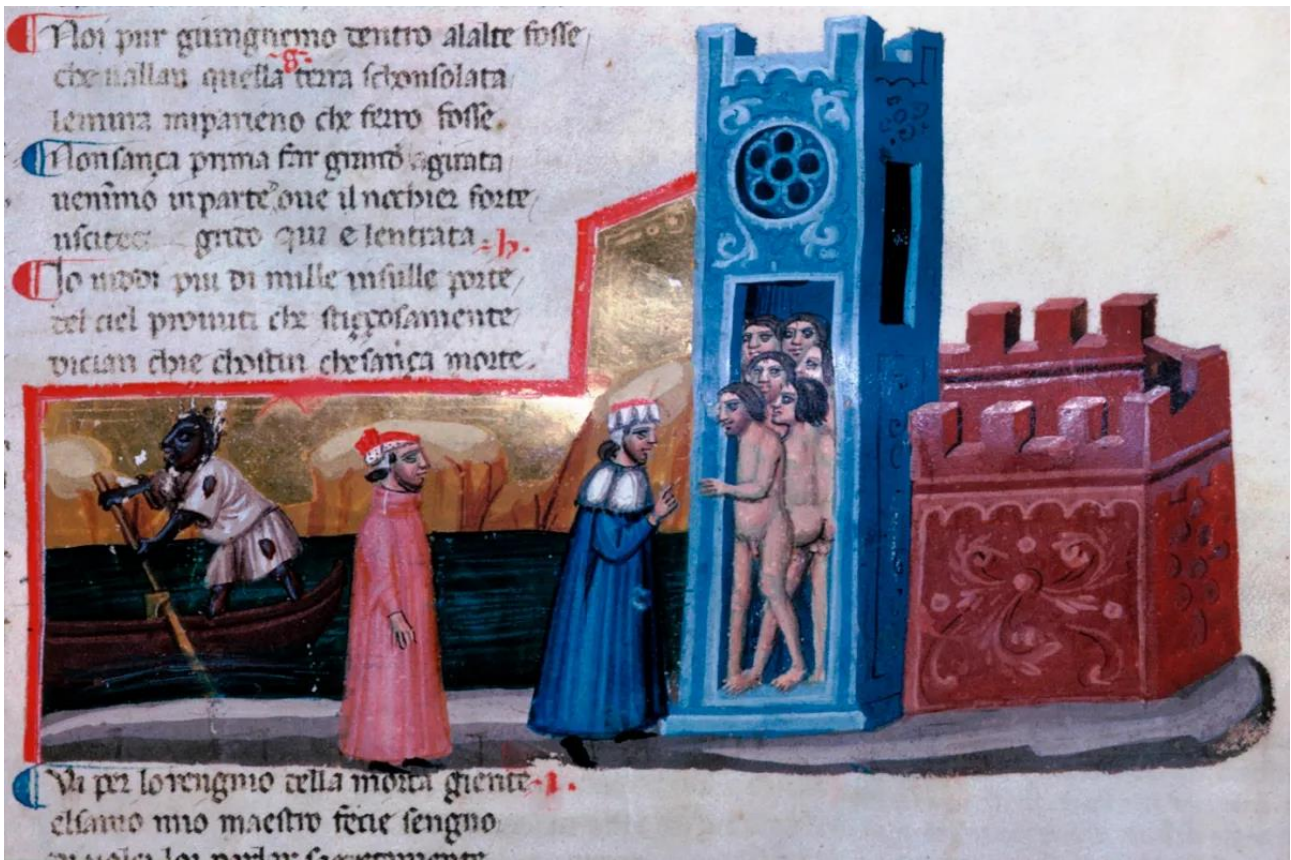 Noi pur giungnemo dentro alalte fosse
che uallan quella terra schonsolata
lemura mi parieno che ferro fosse.
Non sança prima far grand agirata
uenimo in parte oue il nocchier forte
usciteci grido qui e lentrata
Io uiddi piu di mille insulle porte
del ciel piouuti che stiççosamente
dician chie chostui che sança morte.
Va per lo rengnio della morta giente
elsauio mio maestro fecie sengno
di uoler lor parlar segretamente